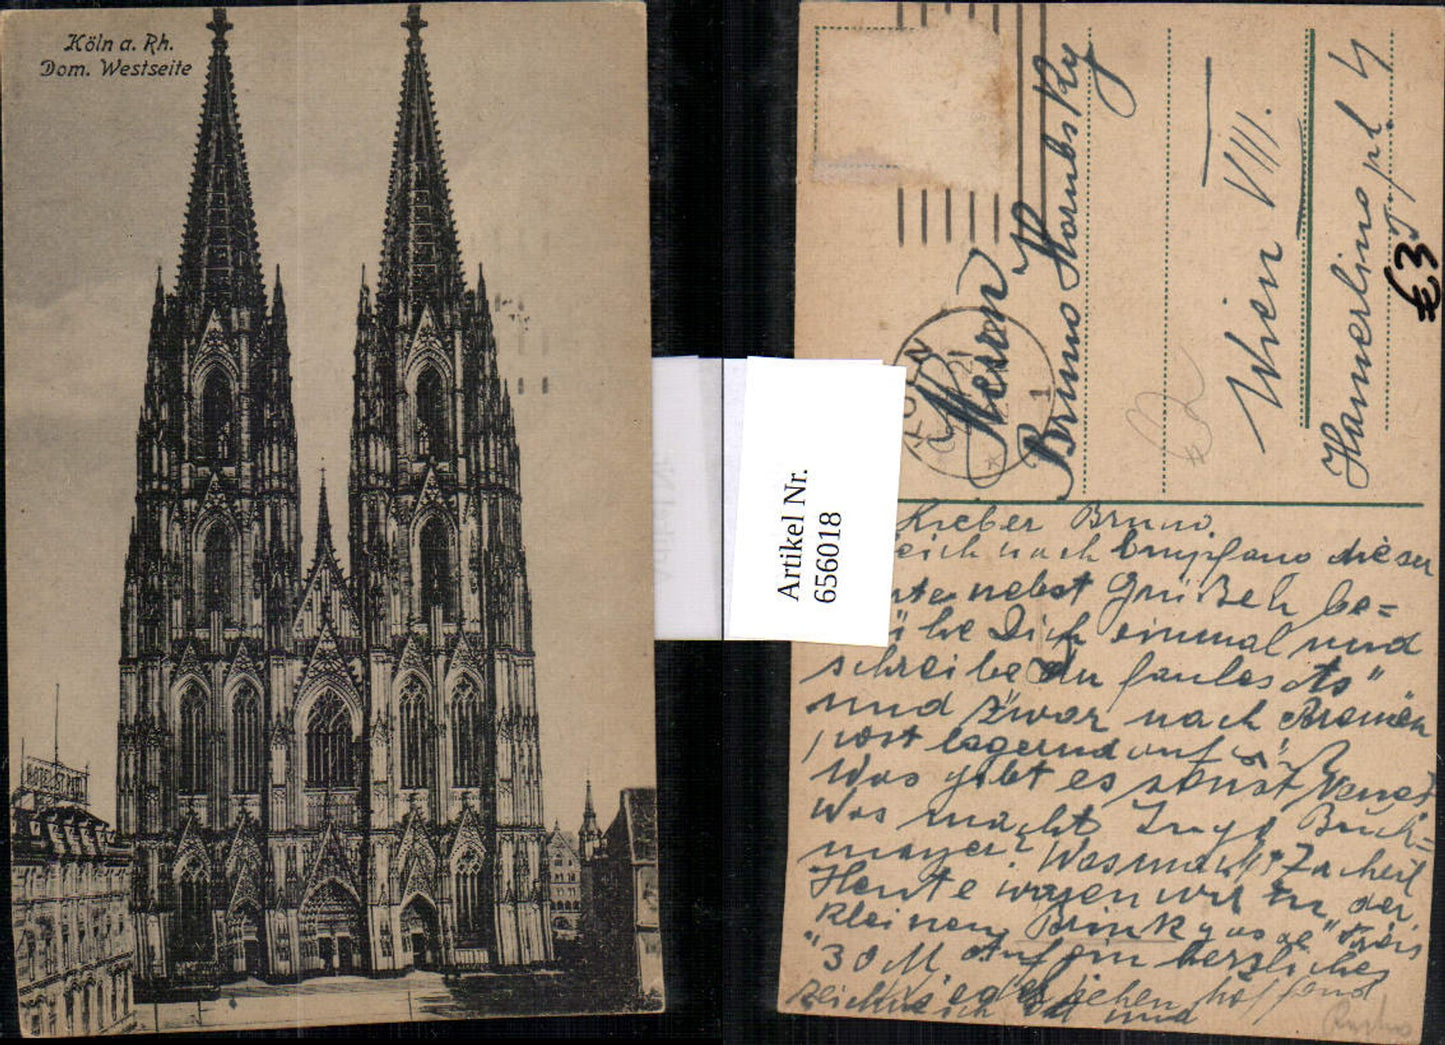 Köln a. Rh.
Dom. Westseite
Artikel Nr.
656018
Herrn
Bruno Hornbsky
Wien VIII.
Hamerlingpl 4
€3
KÖLN
21
1
Lieber Bruno.
nach Empfang dieser
nebst Grüßen be=
Dich einmal und
schreibe du faules As"
und zwar nach Bremen
postlagernd auf
Was gibt es sonst Neues?
Was macht Bruck=
mayer? Was macht Zacherl
Heute waren wir in der
kleinen Brinkgasse "Preis
"30 M. Auf ein herzliches
hoffend
zeichne ich und